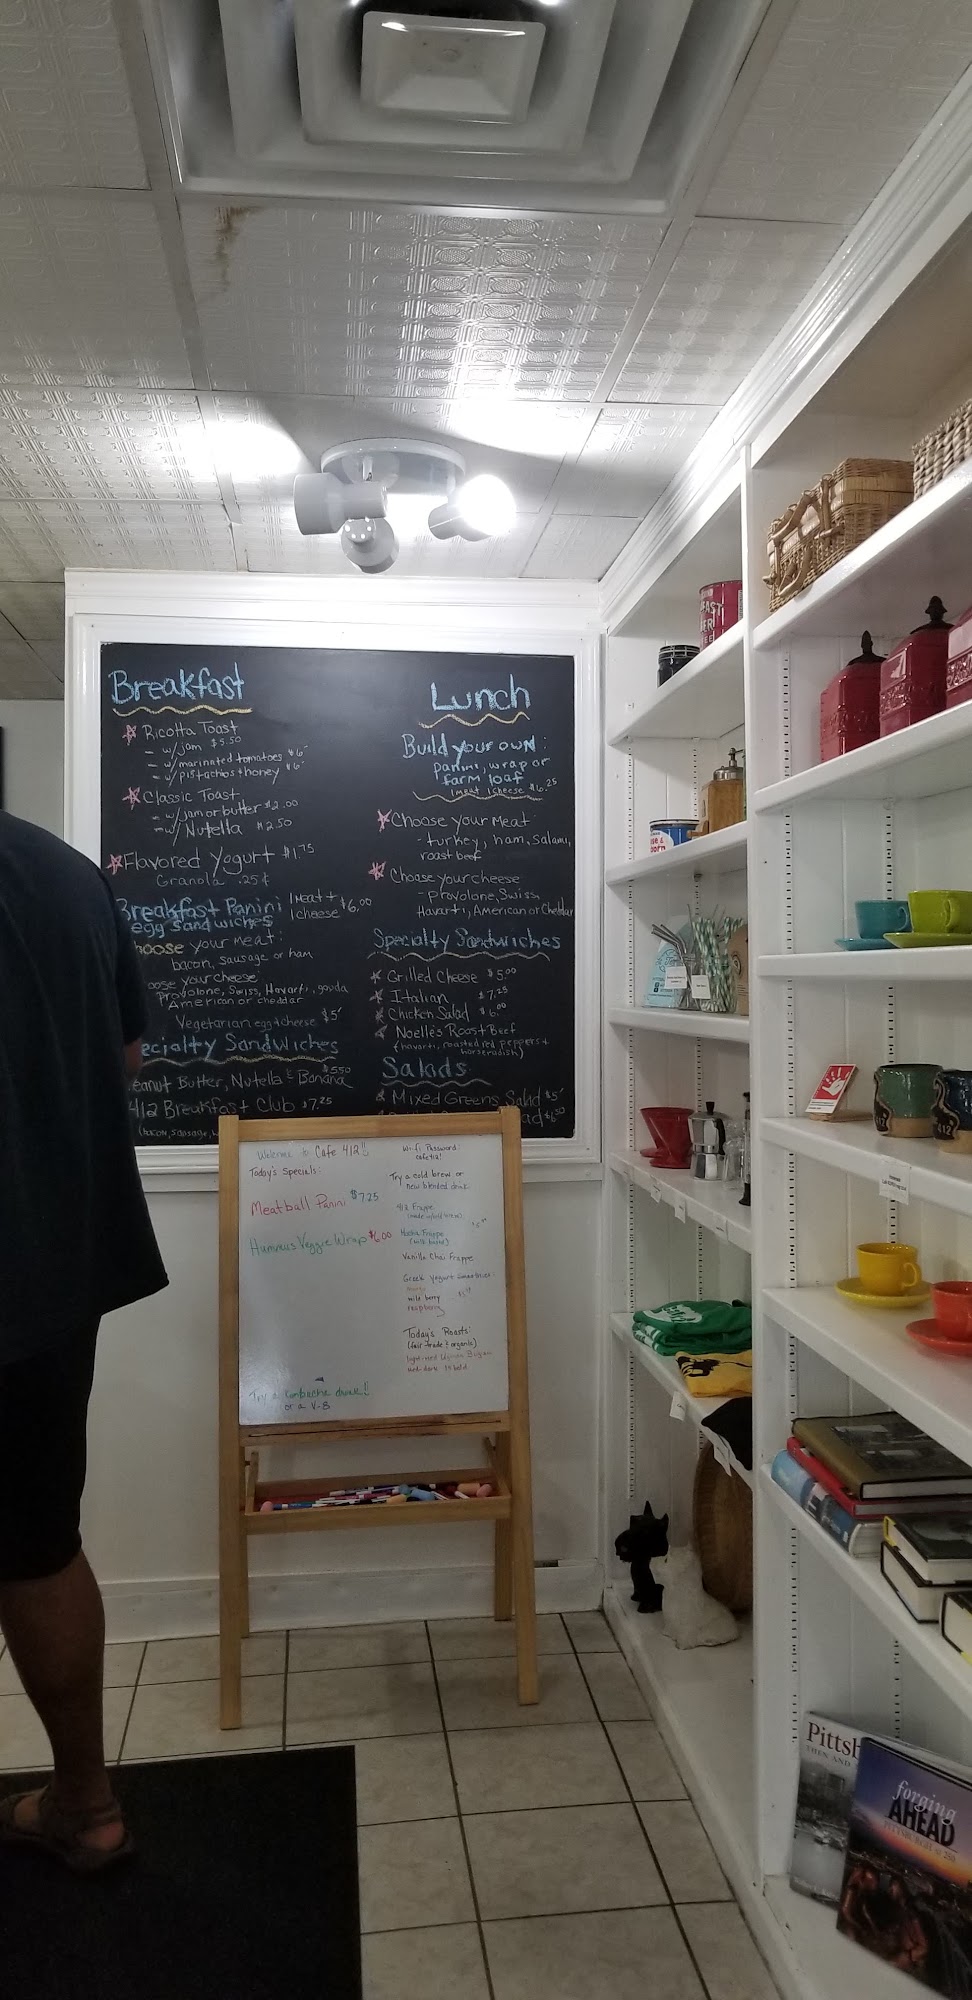 Breakfast
Ricotta Toast
- w/jam $5.50
- w/marinated tomatoes $6
- w/pistachios + honey $6
Classic Toast
- w/jam or butter $2.00
- w/ Nutella $2.50
Flavored Yogurt $1.75
Granola .25¢
Breakfast Panini 1 meat + 1 cheese $6.00
egg sandwiches
choose your meat:
bacon, sausage or ham
Provolone, Swiss, Havarti, gouda
American or cheddar
Vegetarian egg & cheese $5
Sandwiches
Butter, Nutella & Banana $5.50
412 Breakfast Club $7.25
(bacon, sausage,
Lunch
Build your own:
panini, wrap or
farm loaf
1 meat 1 cheese $6.25
Choose your meat
- turkey, ham, salami,
roast beef
Choose your cheese
- Provolone, Swiss,
Havarti, American or Cheddar
Specialty Sandwiches
Grilled Cheese $5.00
Italian $7.25
Chicken Salad $6.00
Noelle's Roast Beef
(havarti, roasted red peppers +
horseradish)
Salads
Mixed Greens Salad $5
Welcome to Cafe 412!!
Today's Specials:
Meatball Panini $7.25
Hummus Veggie Wrap $6.00
or a V-8
Wi-fi Password:
cafe412!
Try a cold brew or
new blended drink
412 Frappe
Mocha Frappe
Vanilla Chai Frappe
Greek yogurt
wild berry
raspberry
Today's Roasts:
(fair trade & organic)
forging
AHEAD
PITTSBURGH @ 250
Pittsb
THEN AND